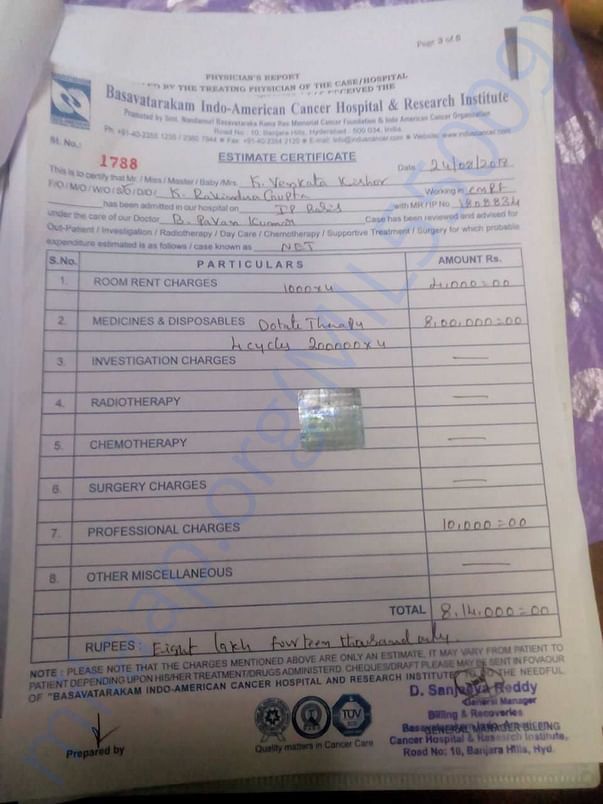 Page 3 of 5
PHYSICIAN'S REPORT
BY THE TREATING PHYSICIAN OF THE CASE/HOSPITAL
RECEIVED THE
Basavatarakam Indo-American Cancer Hospital & Research Institute
Promoted by Smt. Nandamuri Basavataraka Rama Rao Memorial Cancer Foundation & Indo American Cancer Organization
Road No : 10, Banjara Hills, Hyderabad : 500 034, India.
Ph. +91-40-2355 1235 / 2360 7944 Fax +91-40-2354 2120 E-mail: info@induscancer.com Website: www.induscancer.com
St. No.: 1788
ESTIMATE CERTIFICATE
Date : 24/08/2018
This is to certify that Mr. / Miss / Master / Baby /Mrs. K. Venkata Kishor
F/O/M/O/W/O/S/O/D/O/ K. Ravindra Gupta Working in CMRF
has been admitted in our hospital on with MR / IP No 1808834
under the care of our Doctor B. Pavan Kumar Case has been reviewed and advised for
Out-Patient / Investigation / Radiotherapy / Day Care / Chemotherapy / Supportive Treatment / Surgery for which probable
expenditure estimated is as follows / case known as NET
S.No. PARTICULARS AMOUNT Rs.
1. ROOM RENT CHARGES 1000 x 4 4,000=00
2. MEDICINES & DISPOSABLES Dotate Therapy 8,00,000=00
4 cycles 200000 x 4
3. INVESTIGATION CHARGES —
4. RADIOTHERAPY —
5. CHEMOTHERAPY —
6. SURGERY CHARGES —
7. PROFESSIONAL CHARGES 10,000=00
8. OTHER MISCELLANEOUS —
TOTAL 8,14,000=00
RUPEES : Eight lakh fourteen thousand only.
NOTE : PLEASE NOTE THAT THE CHARGES MENTIONED ABOVE ARE ONLY AN ESTIMATE, IT MAY VARY FROM PATIENT TO
PATIENT DEPENDING UPON HIS/HER TREATMENT/DRUGS ADMINISTERD CHEQUES/DRAFT PLEASE MAY BE SENT IN FOVAOUR
OF "BASAVATARAKAM INDO-AMERICAN CANCER HOSPITAL AND RESEARCH INSTITUTE" TO DO THE NEEDFUL.
D. Sanjeeva Reddy
General Manager
Billing & Recoveries
Basavatarakam Indo-American
GENERAL MANAGER BILLING
Cancer Hospital & Research Institute,
Road No: 10, Banjara Hills, Hyd.
TÜV
Quality matters in Cancer Care
Prepared by
milaap.org(MIL55009)